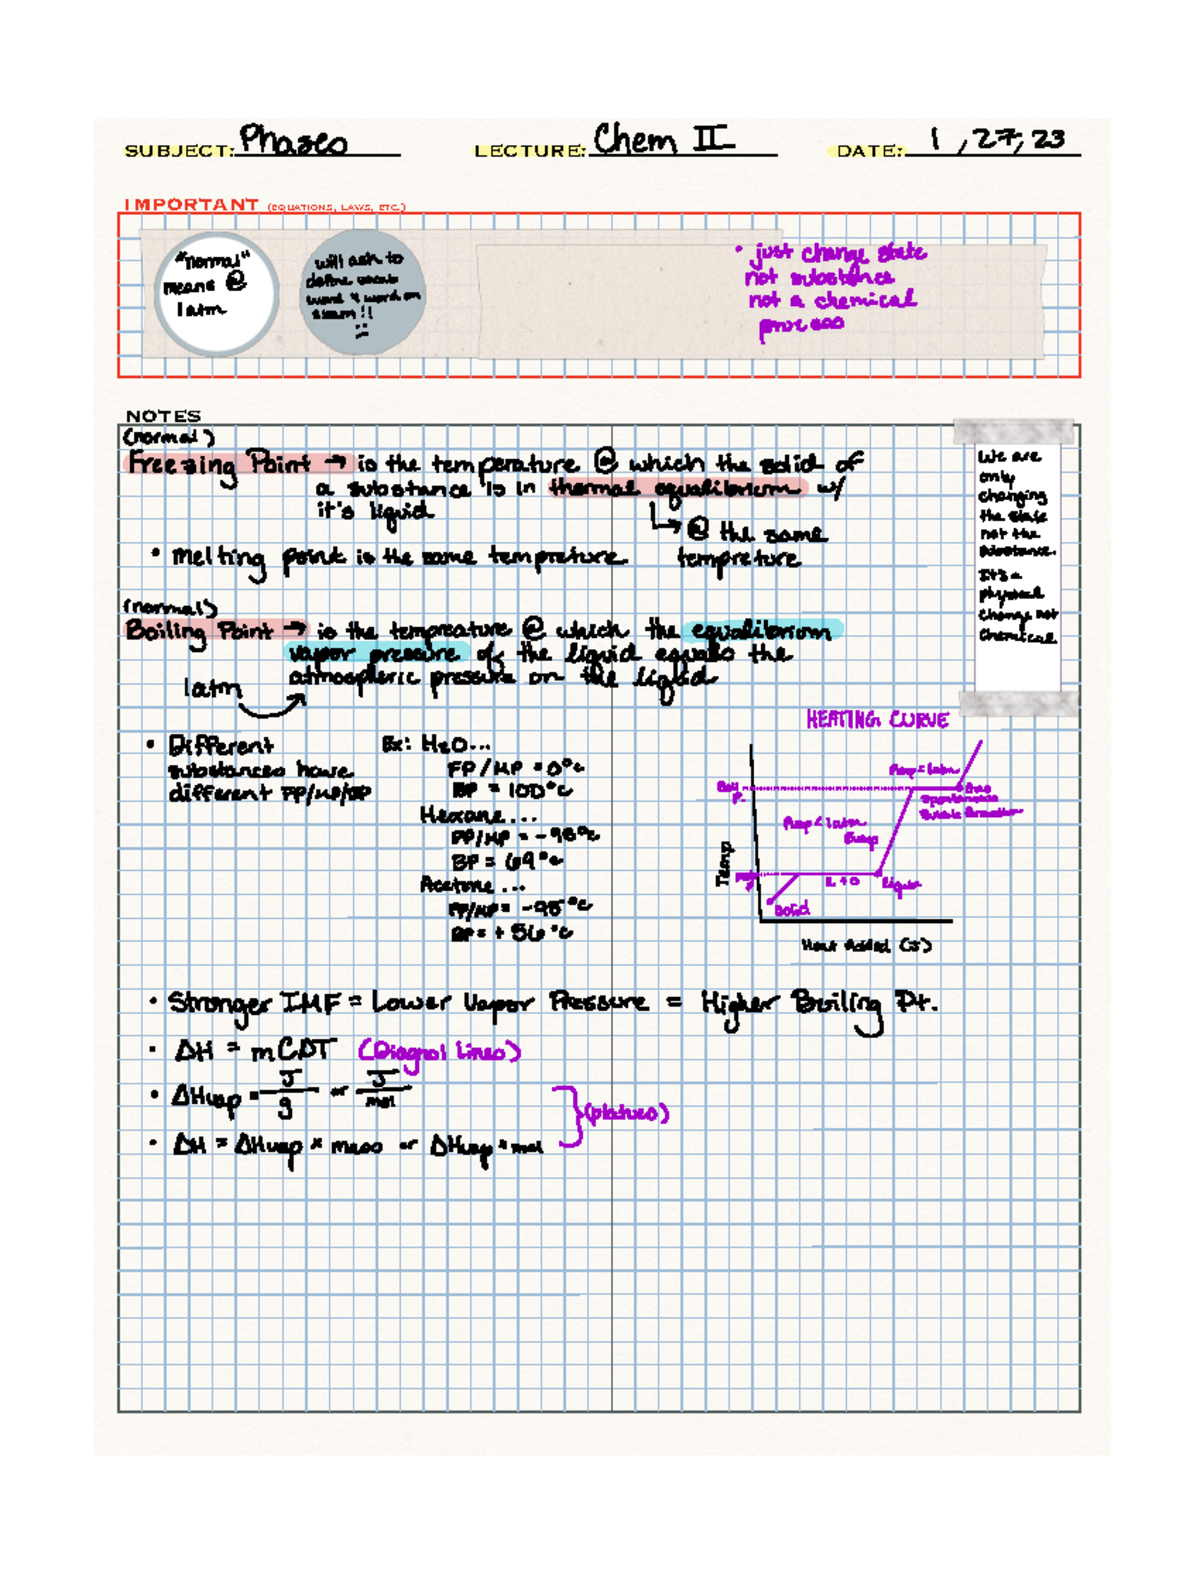 SUBJECT: Phases LECTURE: Chem II DATE: 1, 27, 23
IMPORTANT (EQUATIONS, LAWS, ETC.)
"normal"
means @
1atm
will ask to
define
word 4 word on
exam!!
• just change state
not substance
not a chemical
process
NOTES
(normal)
Freezing Point → is the temperature @ which the solid of
a substance is in thermal equalibrium w/
it's liquid
↳ @ the same
tempreture
• Melting point is the same tempreture
We are
only
changing
the state
not the
substance.
It's a
physical
change not
chemical
(normal)
Boiling Point → is the tempreature @ which the equalibrium
vapor pressure of the liquid equals the
atmospheric pressure on the liquid
1atm
• Different
substances have
different FP/MP/BP
Ex: H2O...
FP/MP = 0°C
BP = 100°C
Hexane...
FP/MP = -95°C
BP = 69°C
Acetone...
FP/MP = -95°C
BP = + 56°C
HEATING CURVE
Temp
Pvap = 1atm
Boil
P.
Gas
Spontaneous
Bubble Formation
Pvap < 1atm
Evap
L + S
liquid
Solid
Heat Added (J)
• Stronger IMF = Lower Vapor Pressure = Higher Boiling Pt.
• ΔH = mCΔT (Diagnol Lines)
• ΔHvap = J/g or J/mol
(platueo)
• ΔH = ΔHvap × mass or ΔHvap • mol